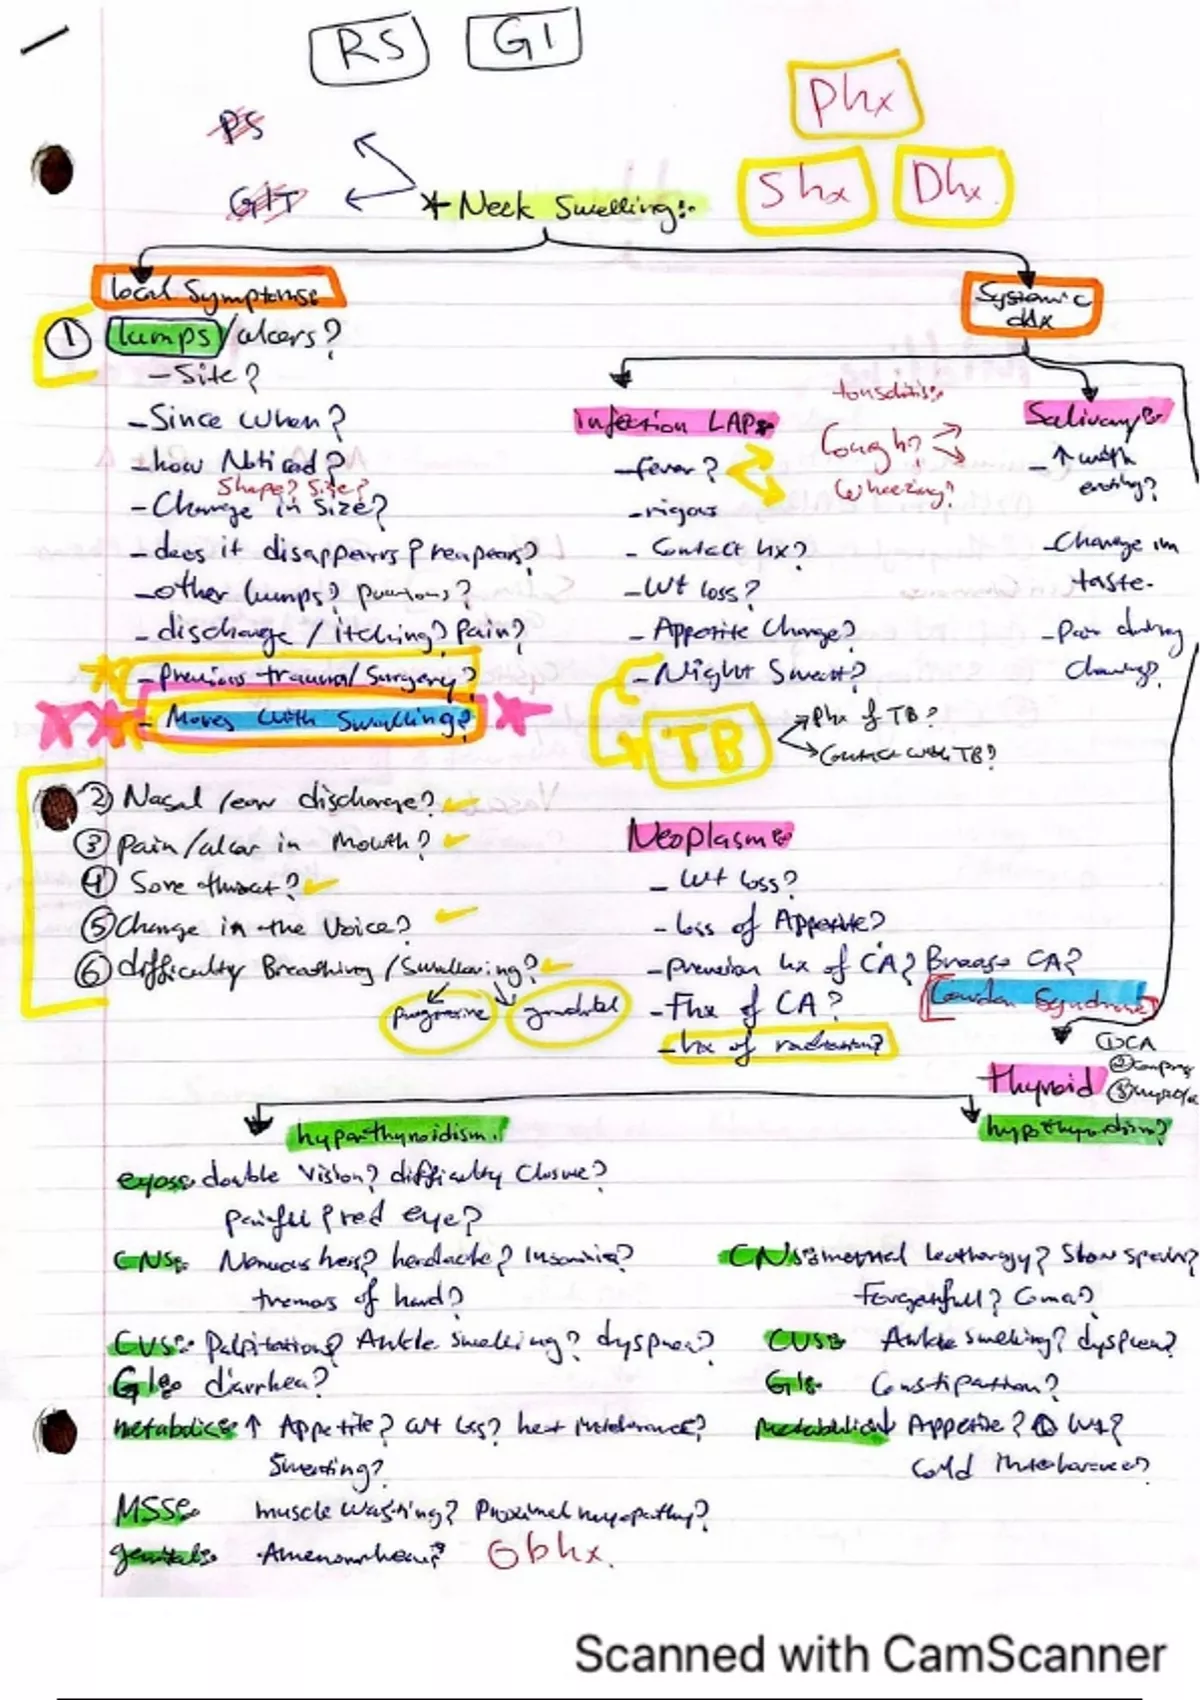 RS GI
Phx
PS
Shx Dhx.
GIT
* Neck Swelling:-
local Symptoms:
Systemic
ddx
① lumps/ulcers?
- Site?
- Since when?
- how Noticed?
Shape? Size?
- Change in Size?
- does it disappears & reapears?
- other lumps?
- discharge / itching? Pain?
- Previous trauma/Surgery?
- Moves with Swalling?
② Nasal /ear discharge?
③ Pain/ulcer in Mouth?
④ Sore throat?
⑤ Change in the Voice?
⑥ difficulty Breathing / Swallowing?
progressive
infection LAP:
- fever?
- rigors
- Contact hx?
- Wt loss?
- Appetite Change?
- Night Sweat?
TB
Phx of TB?
Contact with TB?
Cough?
Wheezing?
Salivary:
- ↑ with
eating?
- Change in
taste.
- Pain during
Neoplasm:
- Wt loss?
- loss of Appetite?
- previous hx of CA? Breast CA?
- Fhx of CA?
Cowden Syndrome
- hx of radiation?
① CA
thyroid
hyperthyroidism.
hypothyroidism?
eyes: double Vision? difficulty Closure?
painful & red eye?
CNS: Nervousness? headache? Insomnia?
tremors of hand?
CVS: Palpitations? Ankle Swelling? dyspnea?
GI: diarrhea?
metabolic: ↑ Appetite? wt loss? heat intolerance?
Sweating?
MSS: muscle wasting? Proximal myopathy?
genital: Amenorrhea? Obhx.
CNS: leathargy? Slow speech?
Forgetfull? Coma?
CVS: Ankle Swelling? dyspnea?
GI: Constipation?
Metabolic ↓ Appetite? ↑ Wt?
Cold intolerance?
Scanned with CamScanner